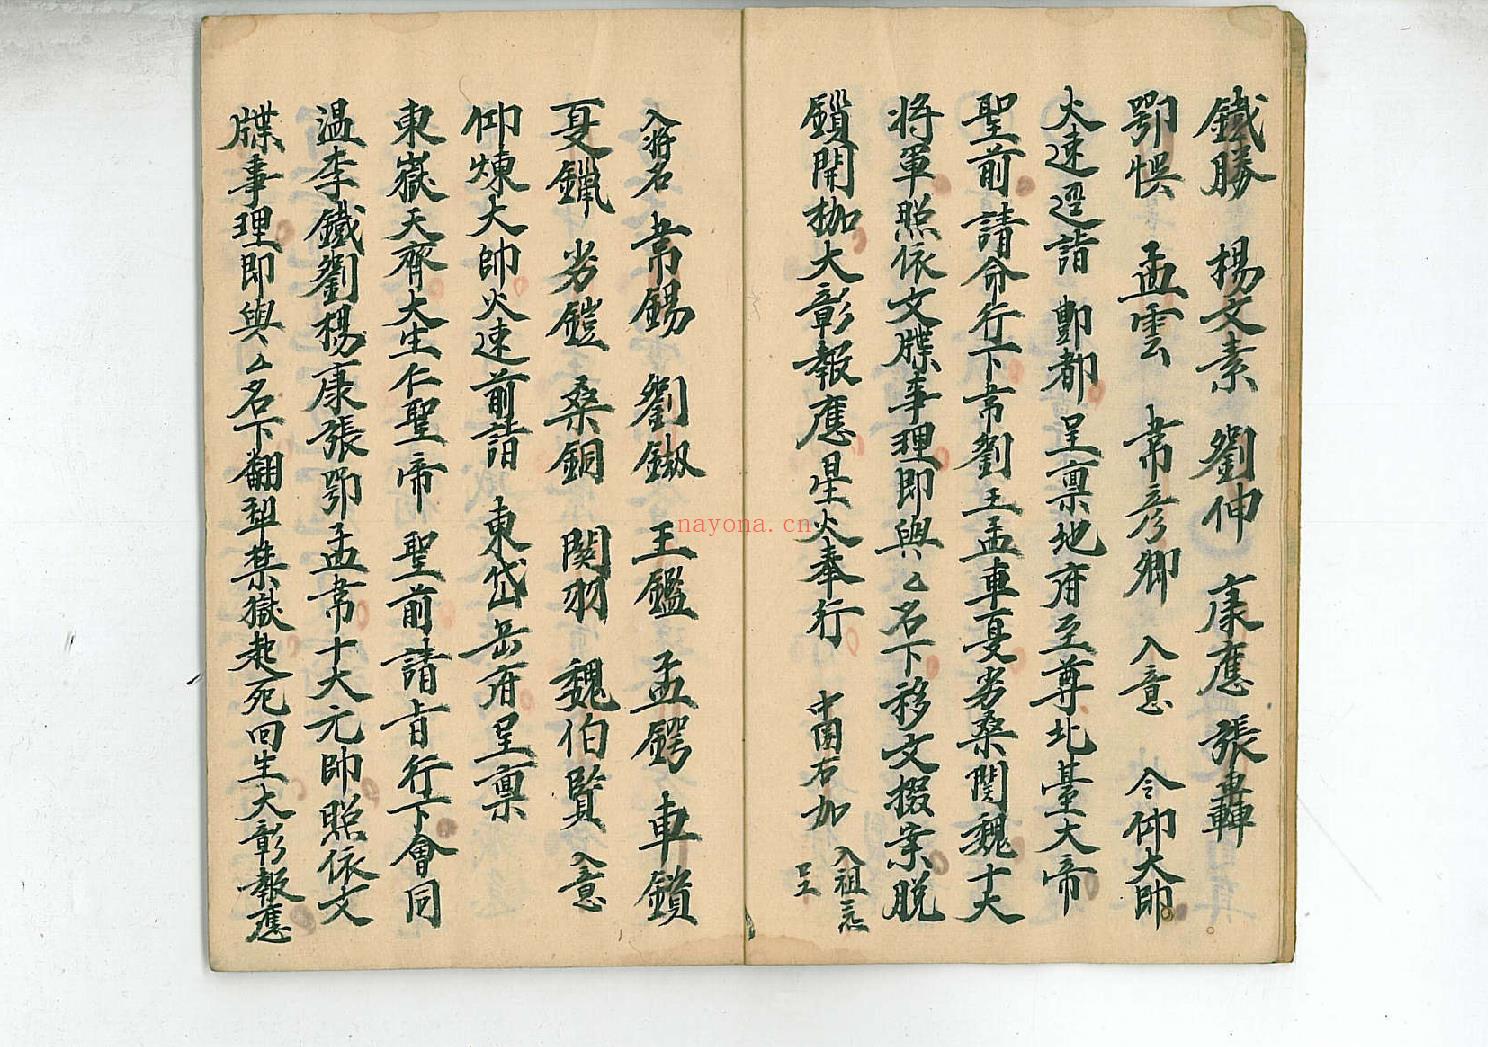 鐵勝 楊文素 劉伸 康應 張轟
鄂悞 孟雲 韋彥卿 入意 仐仰大帥
火速逕詣 酆都 呈稟地府至尊北臺大帝
聖前請命行下韋劉王孟車夏劣桑関魏十大
将軍照依文牒事理即與厶名下移文掇案脫
鎖開枷大彰報應星火奉行 中围右加 入祖
呈
入将名 韋錫 劉鏉 王鑑 孟鍔 車鎖
夏鑞 劣鎧 桑銅 関羽 魏伯賢 入意
仰煉大帥火速前詣 東岱岳府呈稟
東嶽天齊大生仁聖帝 聖前請旨行下會同
温李鐵劉楊康張鄂孟韋十大元帥照依文
牒事理即與厶名下翻 禁獄起死回生大彰報應
nayona.cn